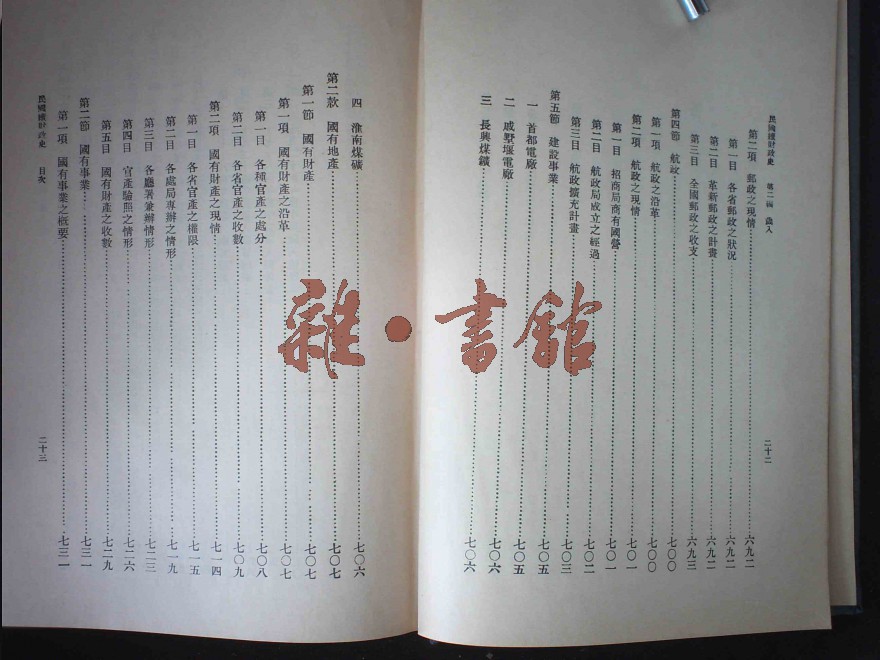 民國續財政史 第二編 歲入
第二項 郵政之現情 六九二
第一目 各省郵政之狀況 六九二
第二目 革新郵政之計畫 六九二
第三目 全國郵政之收支 六九三
第四節 航政 七〇〇
第一項 航政之沿革 七〇〇
第二項 航政之現情 七〇一
第一目 招商局商有國營 七〇一
第二目 航政局成立之經過 七〇二
第三目 航政擴充計畫 七〇三
第五節 建設事業 七〇五
一 首都電廠 七〇五
二 戚墅堰電廠 七〇六
三 長興煤鑛 七〇六
二十二
四 淮南煤礦 七〇六
第二款 國有地產 七〇七
第一節 國有財產 七〇七
第一項 國有財產之沿革 七〇七
第一目 各種官產之處分 七〇八
第二目 各省官產之收數 七〇九
第二項 國有財產之現情 七一四
第一目 各省官產之權限 七一五
第二目 各處局專辦之情形 七一九
第三目 各廳署兼辦情形 七二三
第四目 官產驗照之情形 七二六
第五目 國有財產之收數 七二九
第二節 國有事業 七三一
第一項 國有事業之概要 七三一
民國續財政史 目次
二十三
雜·書館